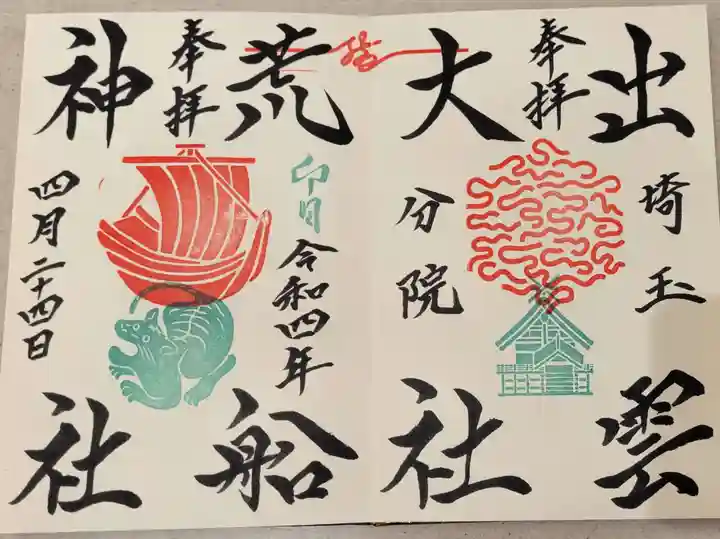 出雲
奉拝
埼玉
大社
分院
結
荒船
奉拝
卯月
令和四年
神社
四月二十四日